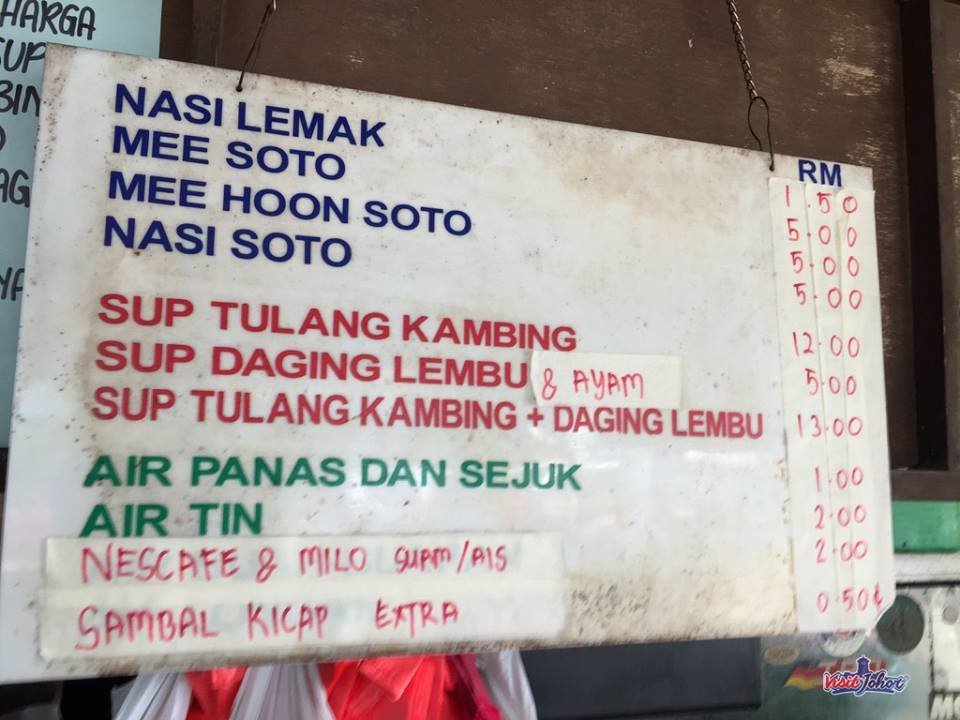 HARGA
SUP
NASI LEMAK
MEE SOTO
MEE HOON SOTO
NASI SOTO
SUP TULANG KAMBING
SUP DAGING LEMBU & AYAM
SUP TULANG KAMBING + DAGING LEMBU
AIR PANAS DAN SEJUK
AIR TIN
NESCAFE & MILO SUAM/AIS
SAMBAL KICAP EXTRA
RM
1.50
5.00
5.00
5.00
12.00
5.00
13.00
1.00
2.00
2.00
0.50¢
Visit Johor